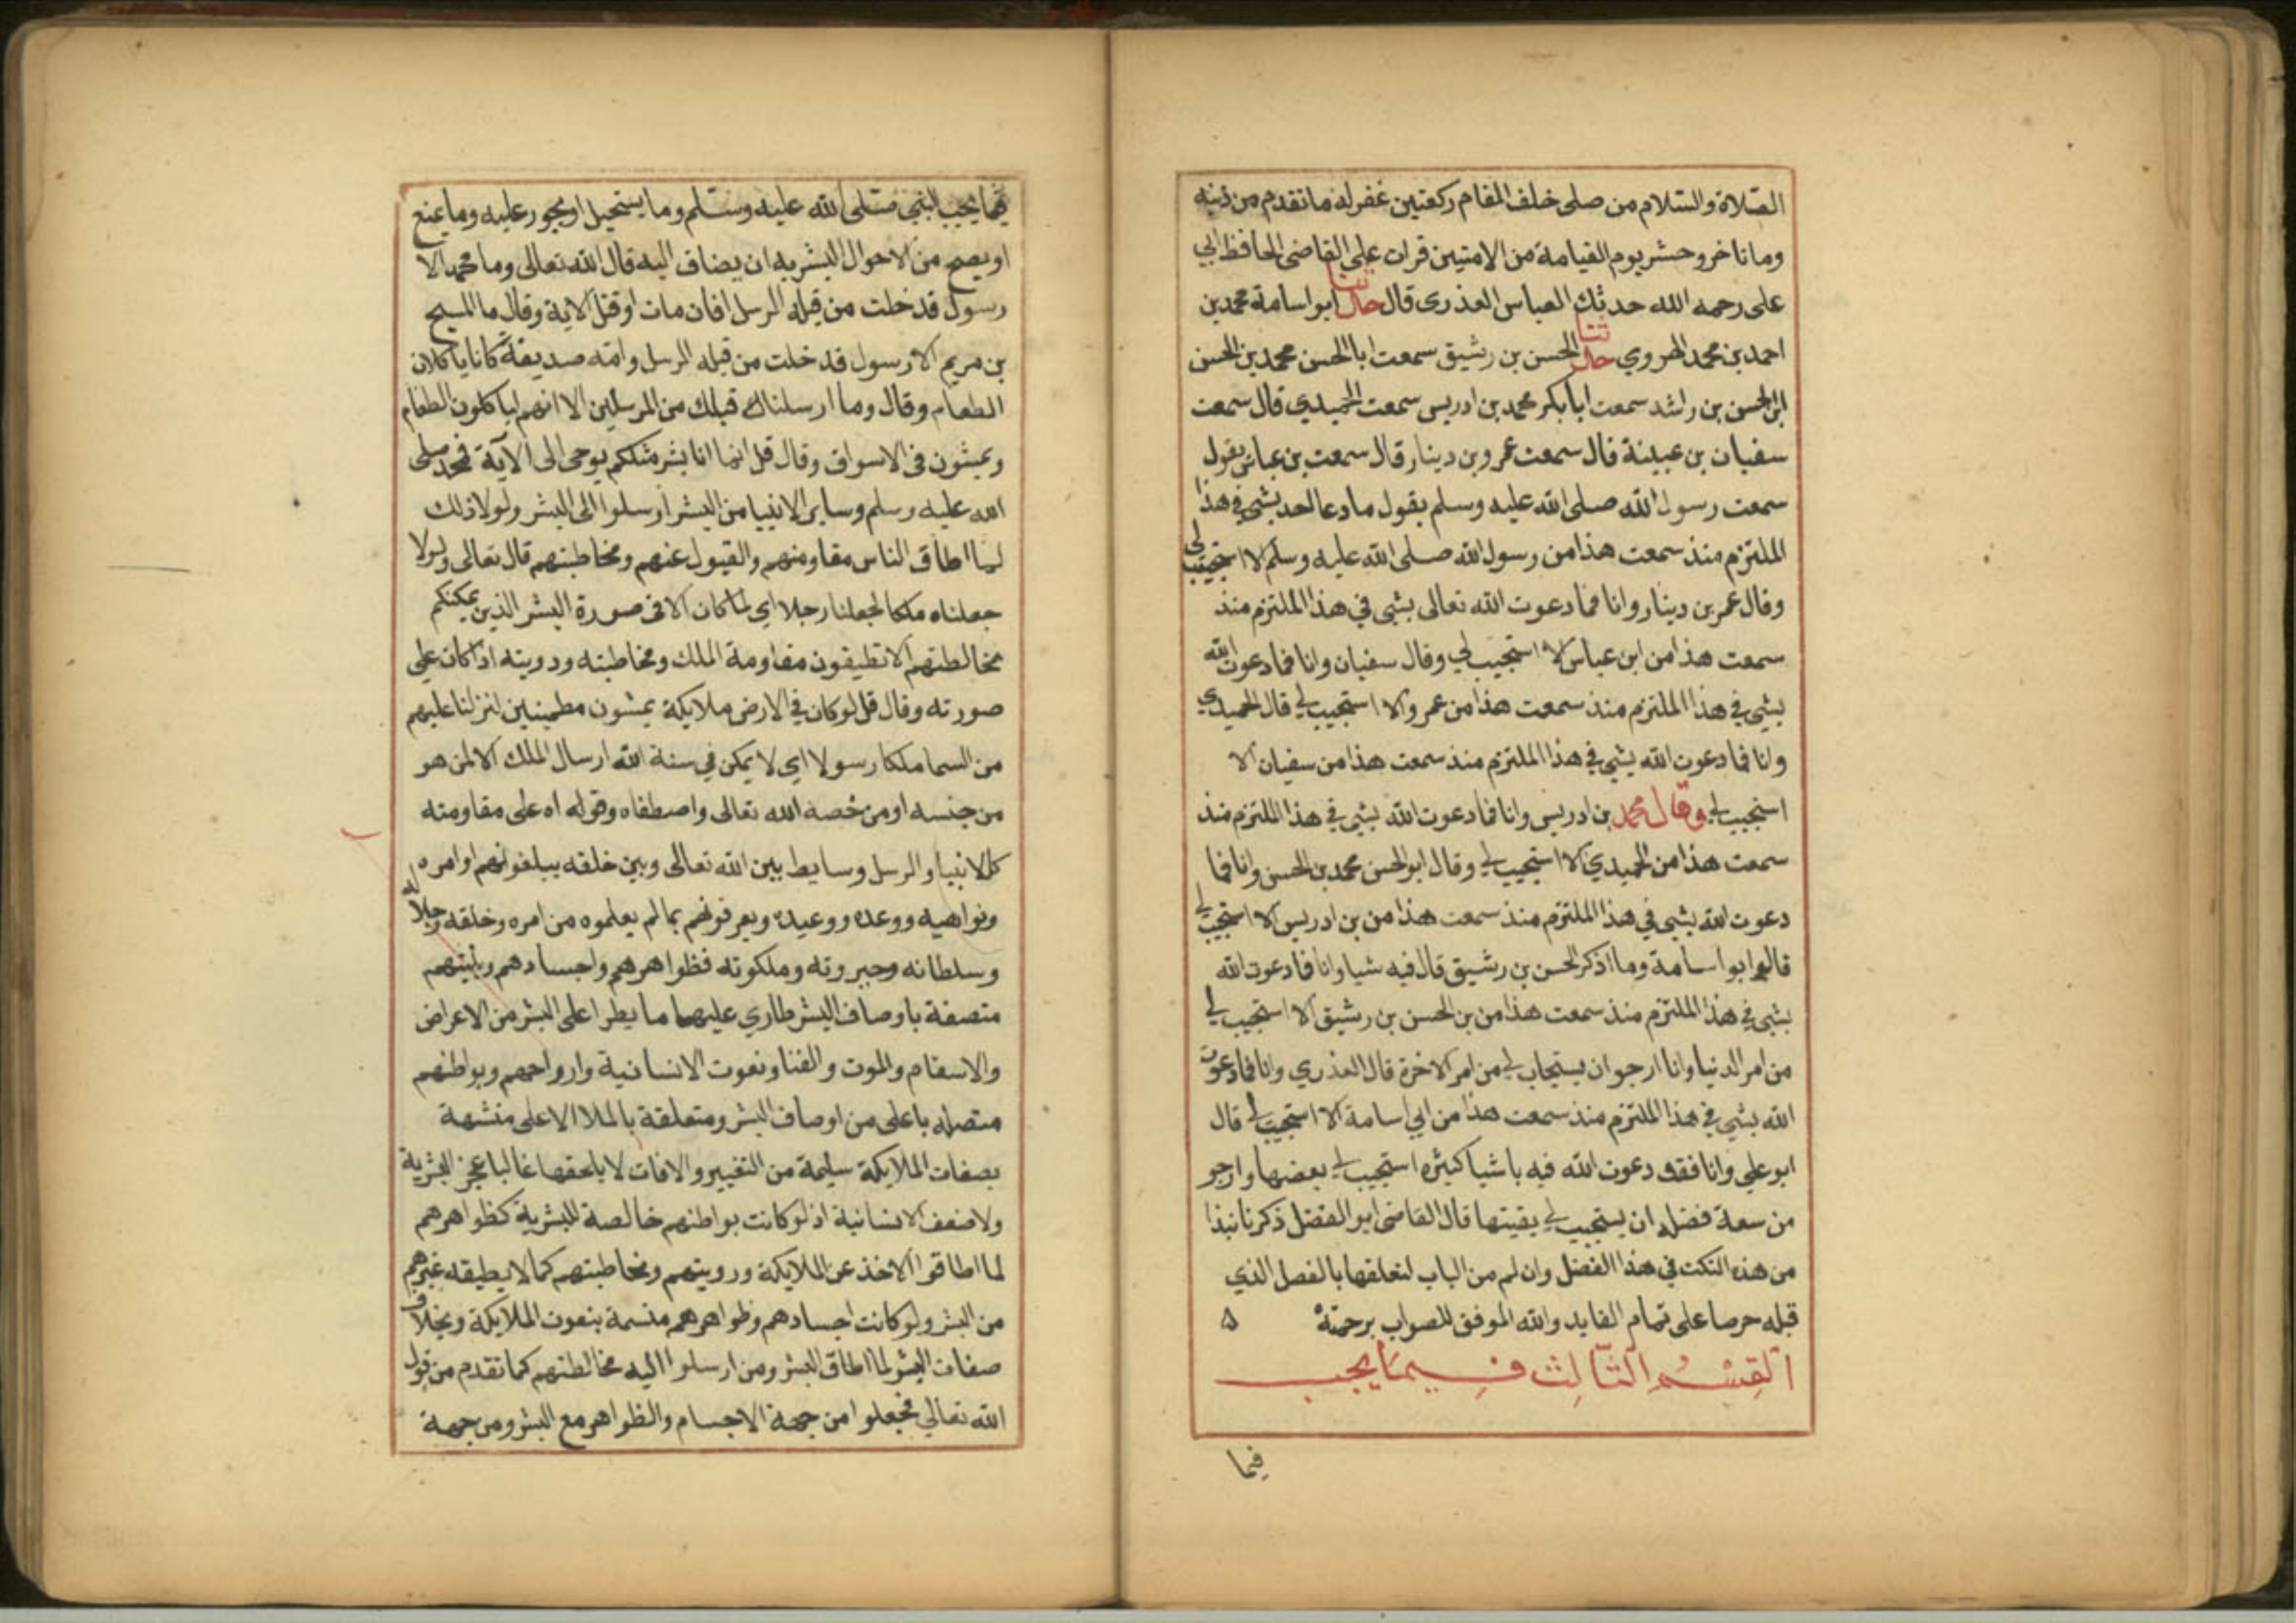 الصلاة والسلام من صلى خلف المقام ركعتين غفر له ما تقدم من ذنبه
وما تاخر وحشر يوم القيامة من الامنين قرات على القاضى الحافظ ابي
على رحمه الله حدثك العباس العذرى قال حدثنا ابو اسامة محمد بن
احمد بن محمد الهروي حدثنا الحسن بن رشيق سمعت ابا الحسن محمد بن الحسن
ابن الحسن بن راشد سمعت ابا بكر محمد بن ادريس سمعت الحميدي قال سمعت
سفيان بن عيينة قال سمعت عمرو بن دينار قال سمعت بن عباس يقول
سمعت رسول الله صلى الله عليه وسلم يقول ما دعا احد بشي في هذا
الملتزم منذ سمعت هذا من رسول الله صلى الله عليه وسلم الا استجيب لي
وقال عمر بن دينار وانا فما دعوت الله تعالى بشي في هذا الملتزم منذ
سمعت هذا من ابن عباس الا استجيب لي وقال سفيان وانا فما دعوت الله
بشي في هذا الملتزم منذ سمعت هذا من عمرو الا استجيب لي قال الحميدي
وانا فما دعوت الله بشي في هذا الملتزم منذ سمعت هذا من سفيان الا
استجيب لي وقال محمد بن ادريس وانا فما دعوت الله بشي في هذا الملتزم منذ
سمعت هذا من الحميدي الا استجيب لي وقال ابو الحسن محمد بن الحسن وانا فما
دعوت الله بشي في هذا الملتزم منذ سمعت هذا من بن ادريس الا استجيب لي
قال ابو اسامة وما اذكر الحسن بن رشيق قال فيه شيا وانا فما دعوت الله
بشي في هذا الملتزم منذ سمعت هذا من بن الحسن بن رشيق الا استجيب لي
من امر الدنيا وانا ارجو ان يستجاب لي من امر الاخرة قال العذري وانا فما دعوت
الله بشي في هذا الملتزم منذ سمعت هذا من ابي اسامة الا استجيب لي قال
ابو علي وانا فقد دعوت الله فيه باشيا كثيره استجيب لي بعضها وارجو
من سعة فضله ان يستجيب لي بقيتها قال القاضى ابو الفضل ذكرنا نبذا
من هذه النكت في هذا الفضل وان لم من الباب لتعلقها بالفصل الذي
قبله حرصا على تمام الفايد والله الموفق للصواب برحمته ۵
القسم الثالث فيما يجب
فيما
فيما يجب للنبي صلى الله عليه وسلم وما يستحيل او يجوز عليه وما يمنع
او يصح من الاحوال البشريه ان يضاف اليه قال الله تعالى وما محمد الا
رسول قد خلت من قبله الرسل افان مات او قتل الاية وقال ما المسيح
بن مريم الا رسول قد خلت من قبله الرسل وامه صديقة كانا ياكلان
الطعام وقال وما ارسلناك قبلك من المرسلين الا انهم لياكلون الطعام
ويمشون في الاسواق وقال قل انما انا بشر مثلكم يوحى الى الآية فمحمد صلى
الله عليه وسلم وساير الانبيا من البشر ارسلوا الى البشر ولولا ذلك
لما اطاق الناس مقاومتهم والقبول عنهم ومخاطبتهم قال تعالى ولولا
جعلناه ملكا لجعلنا رجلا اي لما كان الا في صورة البشر الذين يمكنكم
مخالطتهم الا تطيقون مقاومة الملك ومخاطبته ورويته اذا كان على
صورته وقال قل لو كان في الارض ملايكة يمشون مطمينين لنزلنا عليهم
من السما ملكا رسولا اي لا يمكن في سنة الله ارسال الملك الا لمن هو
من جنسه او من خصه الله تعالى واصطفاه وقواه على مقاومته
كالانبيا والرسل وسايط بين الله تعالى وبين خلقه يبلغونهم اوامره
ونواهيه ووعده ووعيده ويعرفونهم بما لم يعلموه من امره وخلقه وجلاله
وسلطانه وجبروته وملكوته فظواهرهم واجسادهم وبنيتهم
متصفة باوصاف البشر طاري عليها ما يطرا على البشر من الاعراض
والاسقام والموت والفنا ونعوت الانسانية وارواحهم وبواطنهم
متصله باعلى من اوصاف البشر ومتعلقة بالملا الاعلى متشبهة
بصفات الملايكة سليمة من التغيير والافات لا يلحقها غالبا عجز البشرية
ولا ضعف الانسانية اذ لو كانت بواطنهم خالصة للبشرية كظواهرهم
لما اطاقوا الاخذ عن الملايكة ورويتهم ومخاطبتهم كما لا يطيقه غيرهم
من البشر ولو كانت اجسادهم وظواهرهم متسمة بنعوت الملايكة وبخلاف
صفات البشر لما اطاق البشر ومن ارسلوا اليه مخالطتهم كما تقدم من قول
الله تعالي فجعلوا من جهة الاجسام والظواهر مع البشر ومن جهة